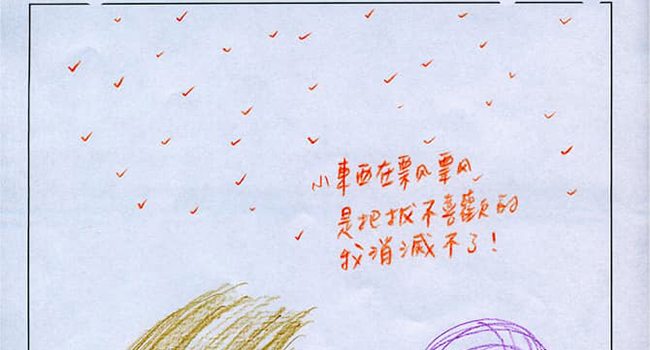 小東西在飄飄,
是把拔不喜歡的
我消滅不了!